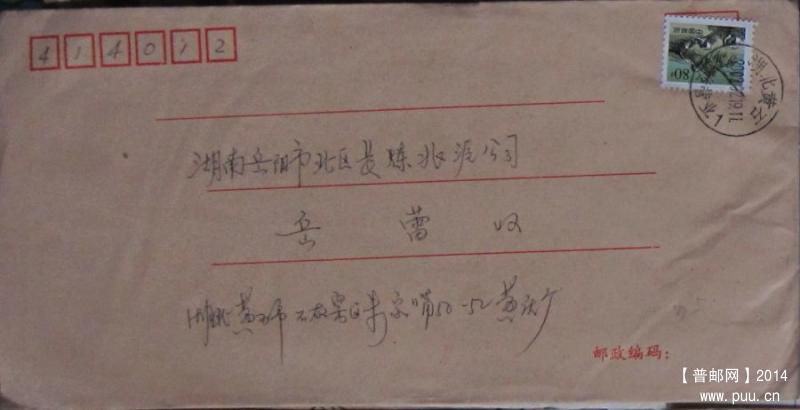 414012
80分
湖北黄石
湖南岳阳市北区长炼兆泥公司
岳 蕾 收
湖北黄石市石灰窑区 50-52
邮政编码:
【普邮网】2014
www.puu.cn